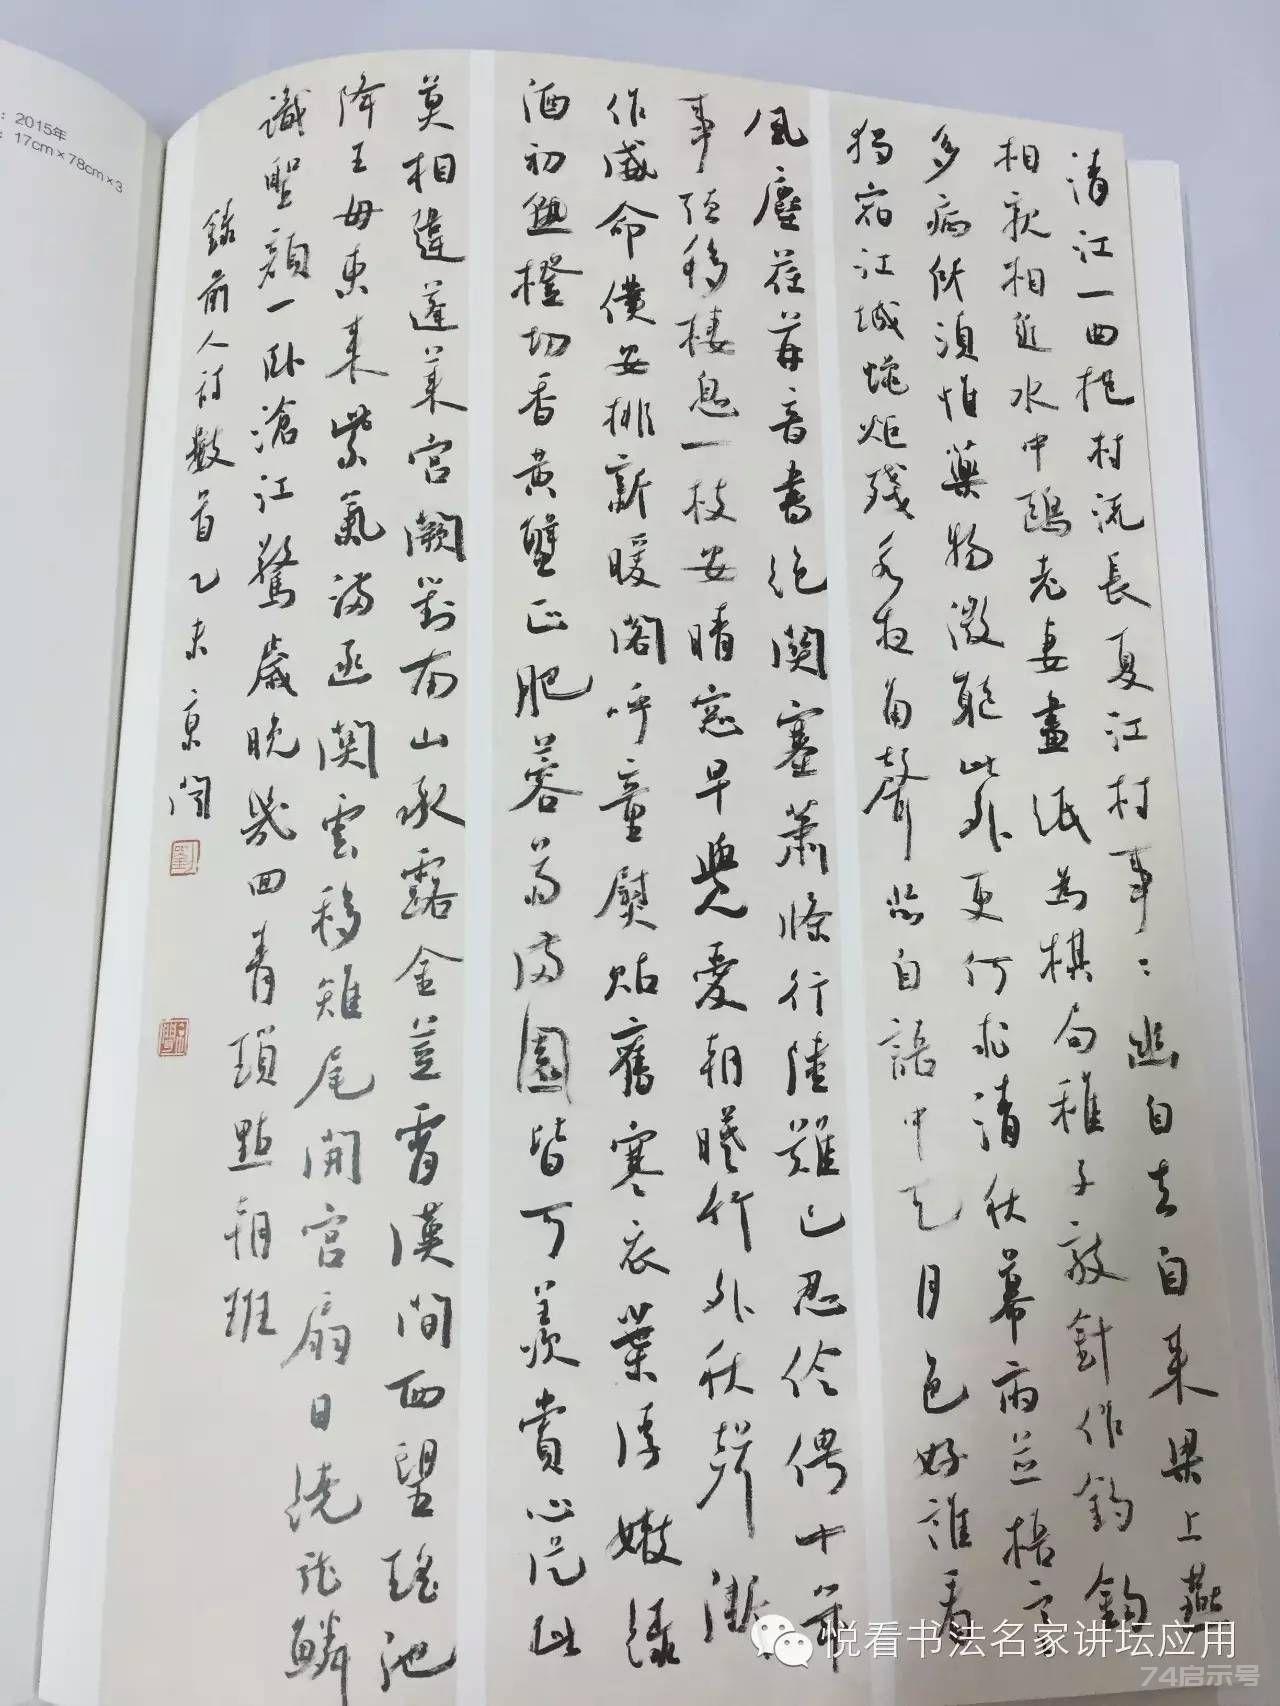 ：2015年
：17cm×78cm×3
清江一曲抱村流長夏江村事〻幽自去自来梁上燕
相親相近水中鷗老妻畫紙為棋局稚子敲針作釣鈎
多病所須惟藥物微軀此外更何求清秋幕府井梧寒
獨宿江城蠟炬殘永夜角聲悲自語中天月色好誰看
風塵荏苒音書絶關塞蕭條行陸難已忍伶俜十年
事強移棲息一枝安晴窓早覺愛朝曦竹外秋聲漸
作威命僕安排新暖閣呼童熨貼舊寒衣葉浮嫩緑
酒初熟橙切香黄蟹正肥蓉菊満園皆可羨賞心從此
莫相違蓬莱宮闕對南山承露金莖霄漢間西望瑶池
降王母東来紫氣満函關雲移雉尾開宮扇日繞龍鱗
識聖顔一卧滄江驚歲晚幾回青瑣點朝班
録前人詩數首乙未京聞
悦看书法名家讲坛应用
74启示号